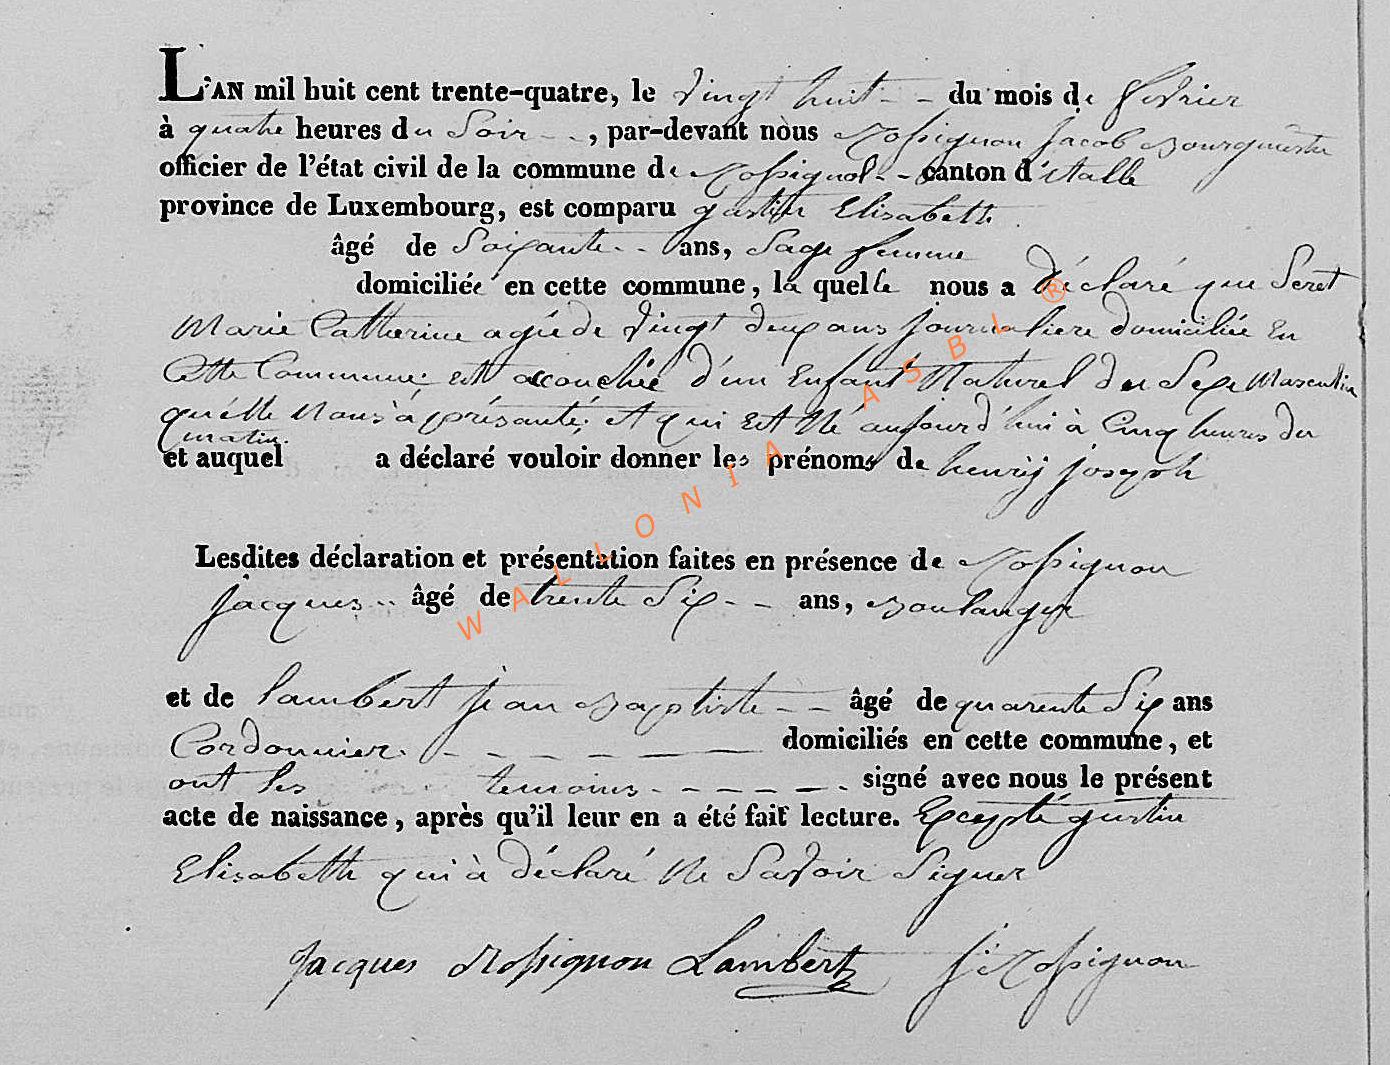 L'AN mil huit cent trente-quatre, le vingt huit - - du mois de fevrier
à quatre heures du Soir - -, par-devant nous Rossignon jacob Bourguestre
officier de l'état civil de la commune de Rossignol - - canton d'étalle
province de Luxembourg, est comparu Elisabette
âgé de Soixante - - ans, Sage femme
domiciliée en cette commune, la quelle nous a déclaré que Seret
Marie Catherine agée de vingt deux ans journaliere domiciliée En
Cette Commune est accouchée d'un Enfant Naturel du Sexe Masculin
qu'elle Nous à présanté; et qui Est Né aujourd'hui à Cinq heures du
matin.
et auquel a déclaré vouloir donner les prénoms de henrÿ joseph
Lesdites déclaration et présentation faites en présence de Rossignon
jacques - - âgé de trente Six - - ans, Boulanger
et de lambert jean Baptiste - - âgé de quarente Six ans
Cordonnier. - - - - - - domiciliés en cette commune, et
ont les temoins - - - - - signé avec nous le présent
acte de naissance, après qu'il leur en a été fait lecture. Excepté gustin
Elisabette qui à déclaré Ne Savoir Signer
Jacques Rossignon Lambert j: Rossignon
WALLONIA ASBL ®